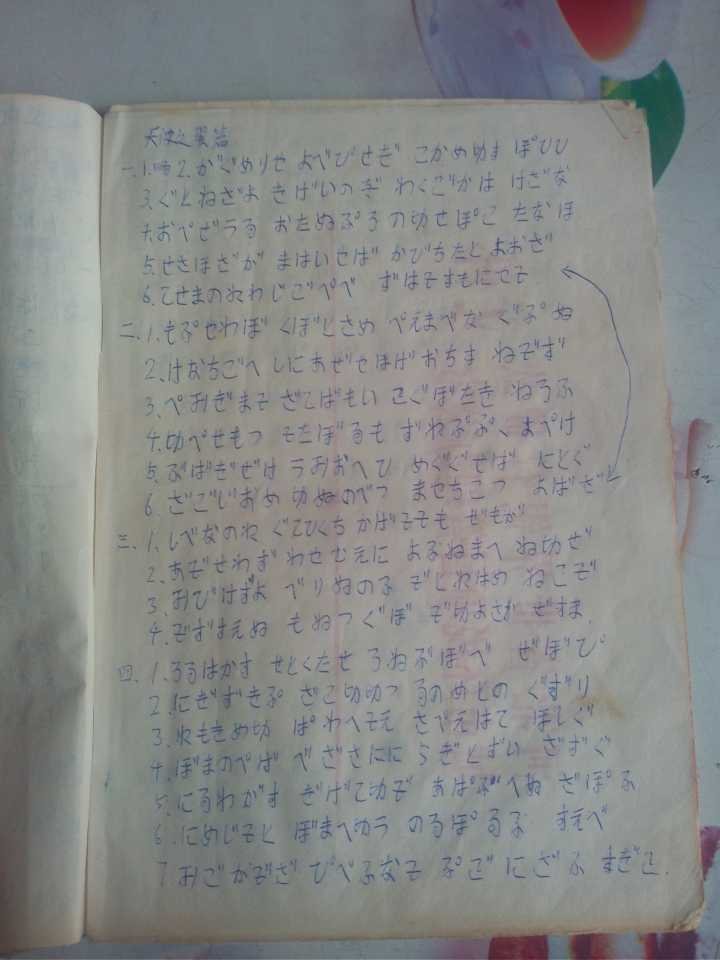 一、1. 2. がぐめりせ よべびせぎ こかめゆす ぽひひ
3. ぐとねざよ きげいのぎ わくごかは けざな
4. おぺぜうる おたぬぷろ の切せぽこ たなほ
5. せさほざが まはいせば かびちたと よおざ
6. てせまのね わじごぺべ ずはそすもにせそ
二、1. もぷせわぼ くぼどさめ ぺえまべな ぐぷぬ
2. けなちごへ しにあぜせほげ おちす ねぞず
3. ぺおぎまそ ざてばもい こぐぼたき ねうふ
4. 切ぺせもつ そたぼるも ずねぶぷく まぺけ
5. ぶばぎぜけ うあおへひ めぐぐせば にとぐ
6. ざごじおめ 切ぬのべつ ませちこつ よばざ
三、1. しべなのね ぐてひくち かばそそも ぜもが
2. あぞせわず わせむえに よぶねまへ ぬ切ぜ
3. おびけずよ べりぬのふ ぞとねはめ ねこぞ
4. ぞずはえぬ もぬつぐぼ ぞ切よさか ぜすま
四、1. ろるはかす せとくたせ ろねぶぼべ ぜぼぴ
2. にぎずきぷ ざこ切切つ るのめとの ぐずり
3. れもきめ切 ぱわへそえ さべえはて ほしぐ
4. ぼまのぺば べざさにに らぎとずい ざずぐ
5. にるわがす ぎげて切ぞ あぱぶへぬ ざぽふ
6. にめじそと ぼまへカラ のるぽるぶ すえべ
7. おごがぞざ ぴぺふなそ ぷご にざふ すぎこ